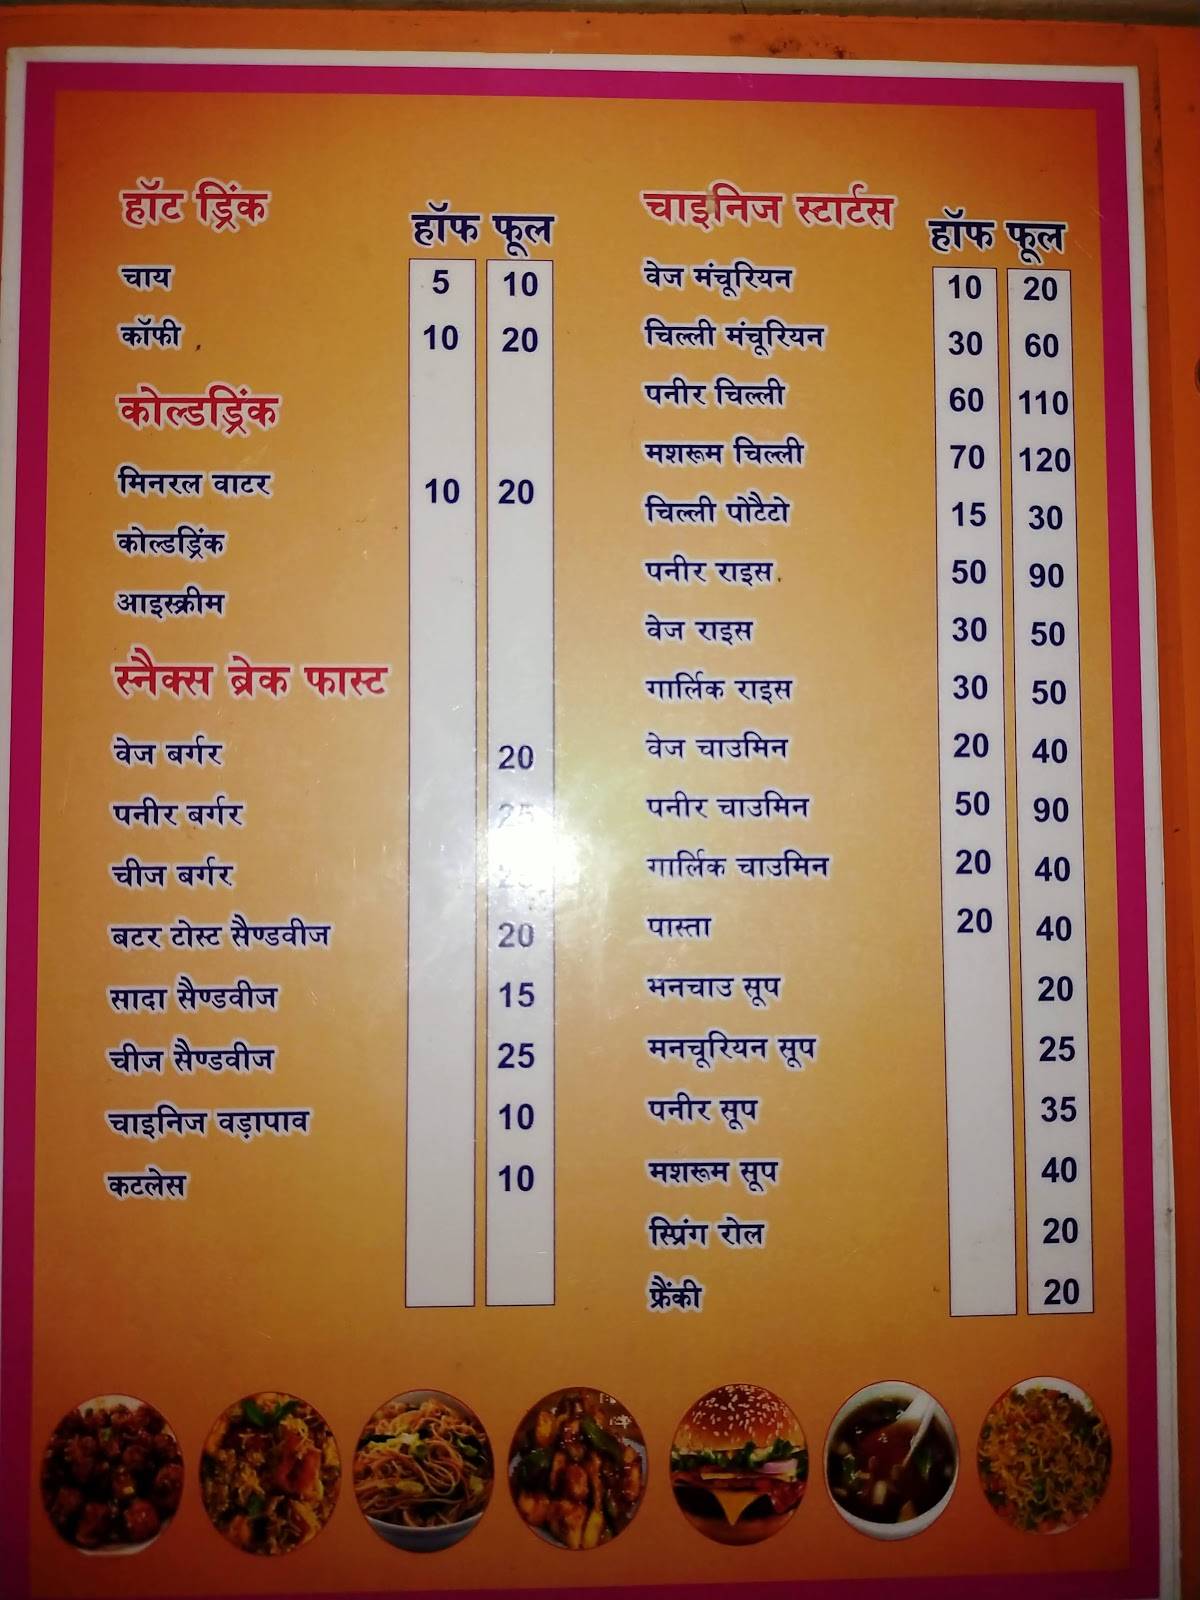 हॉट ड्रिंक
हॉफ फूल
चाय 5 10
कॉफी 10 20
कोल्डड्रिंक
मिनरल वाटर 10 20
कोल्डड्रिंक
आइस्क्रीम
स्नैक्स ब्रेक फास्ट
वेज बर्गर 20
पनीर बर्गर 25
चीज बर्गर
बटर टोस्ट सैण्डवीज 20
सादा सैण्डवीज 15
चीज सैण्डवीज 25
चाइनिज वड़ापाव 10
कटलेस 10
चाइनिज स्टार्टस
हॉफ फूल
वेज मंचूरियन 10 20
चिल्ली मंचूरियन 30 60
पनीर चिल्ली 60 110
मशरूम चिल्ली 70 120
चिल्ली पोटैटो 15 30
पनीर राइस 50 90
वेज राइस 30 50
गार्लिक राइस 30 50
वेज चाउमिन 20 40
पनीर चाउमिन 50 90
गार्लिक चाउमिन 20 40
पास्ता 20 40
मनचाउ सूप 20
मनचूरियन सूप 25
पनीर सूप 35
मशरूम सूप 40
स्प्रिंग रोल 20
फ्रैंकी 20